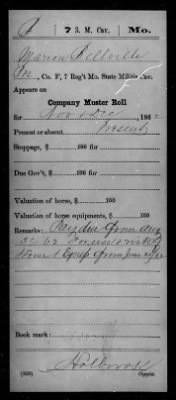 P 7 3. M. Cav. Mo.
Marion Pellville
Pvt., Co. F, 7 Reg't Mo. State Militia Cav.
Appears on
Company Muster Roll
for Nov & Dec, 186
Present or absent, Present
Stoppage, $ 100 for
Due Gov't, $ 100 for
Valuation of horse, $ 100
Valuation of horse equipments, $ 100
Remarks: Pay due from
for use & risk of
Horse & Equip from
Book mark:
Holbrook
(858) Copyist.